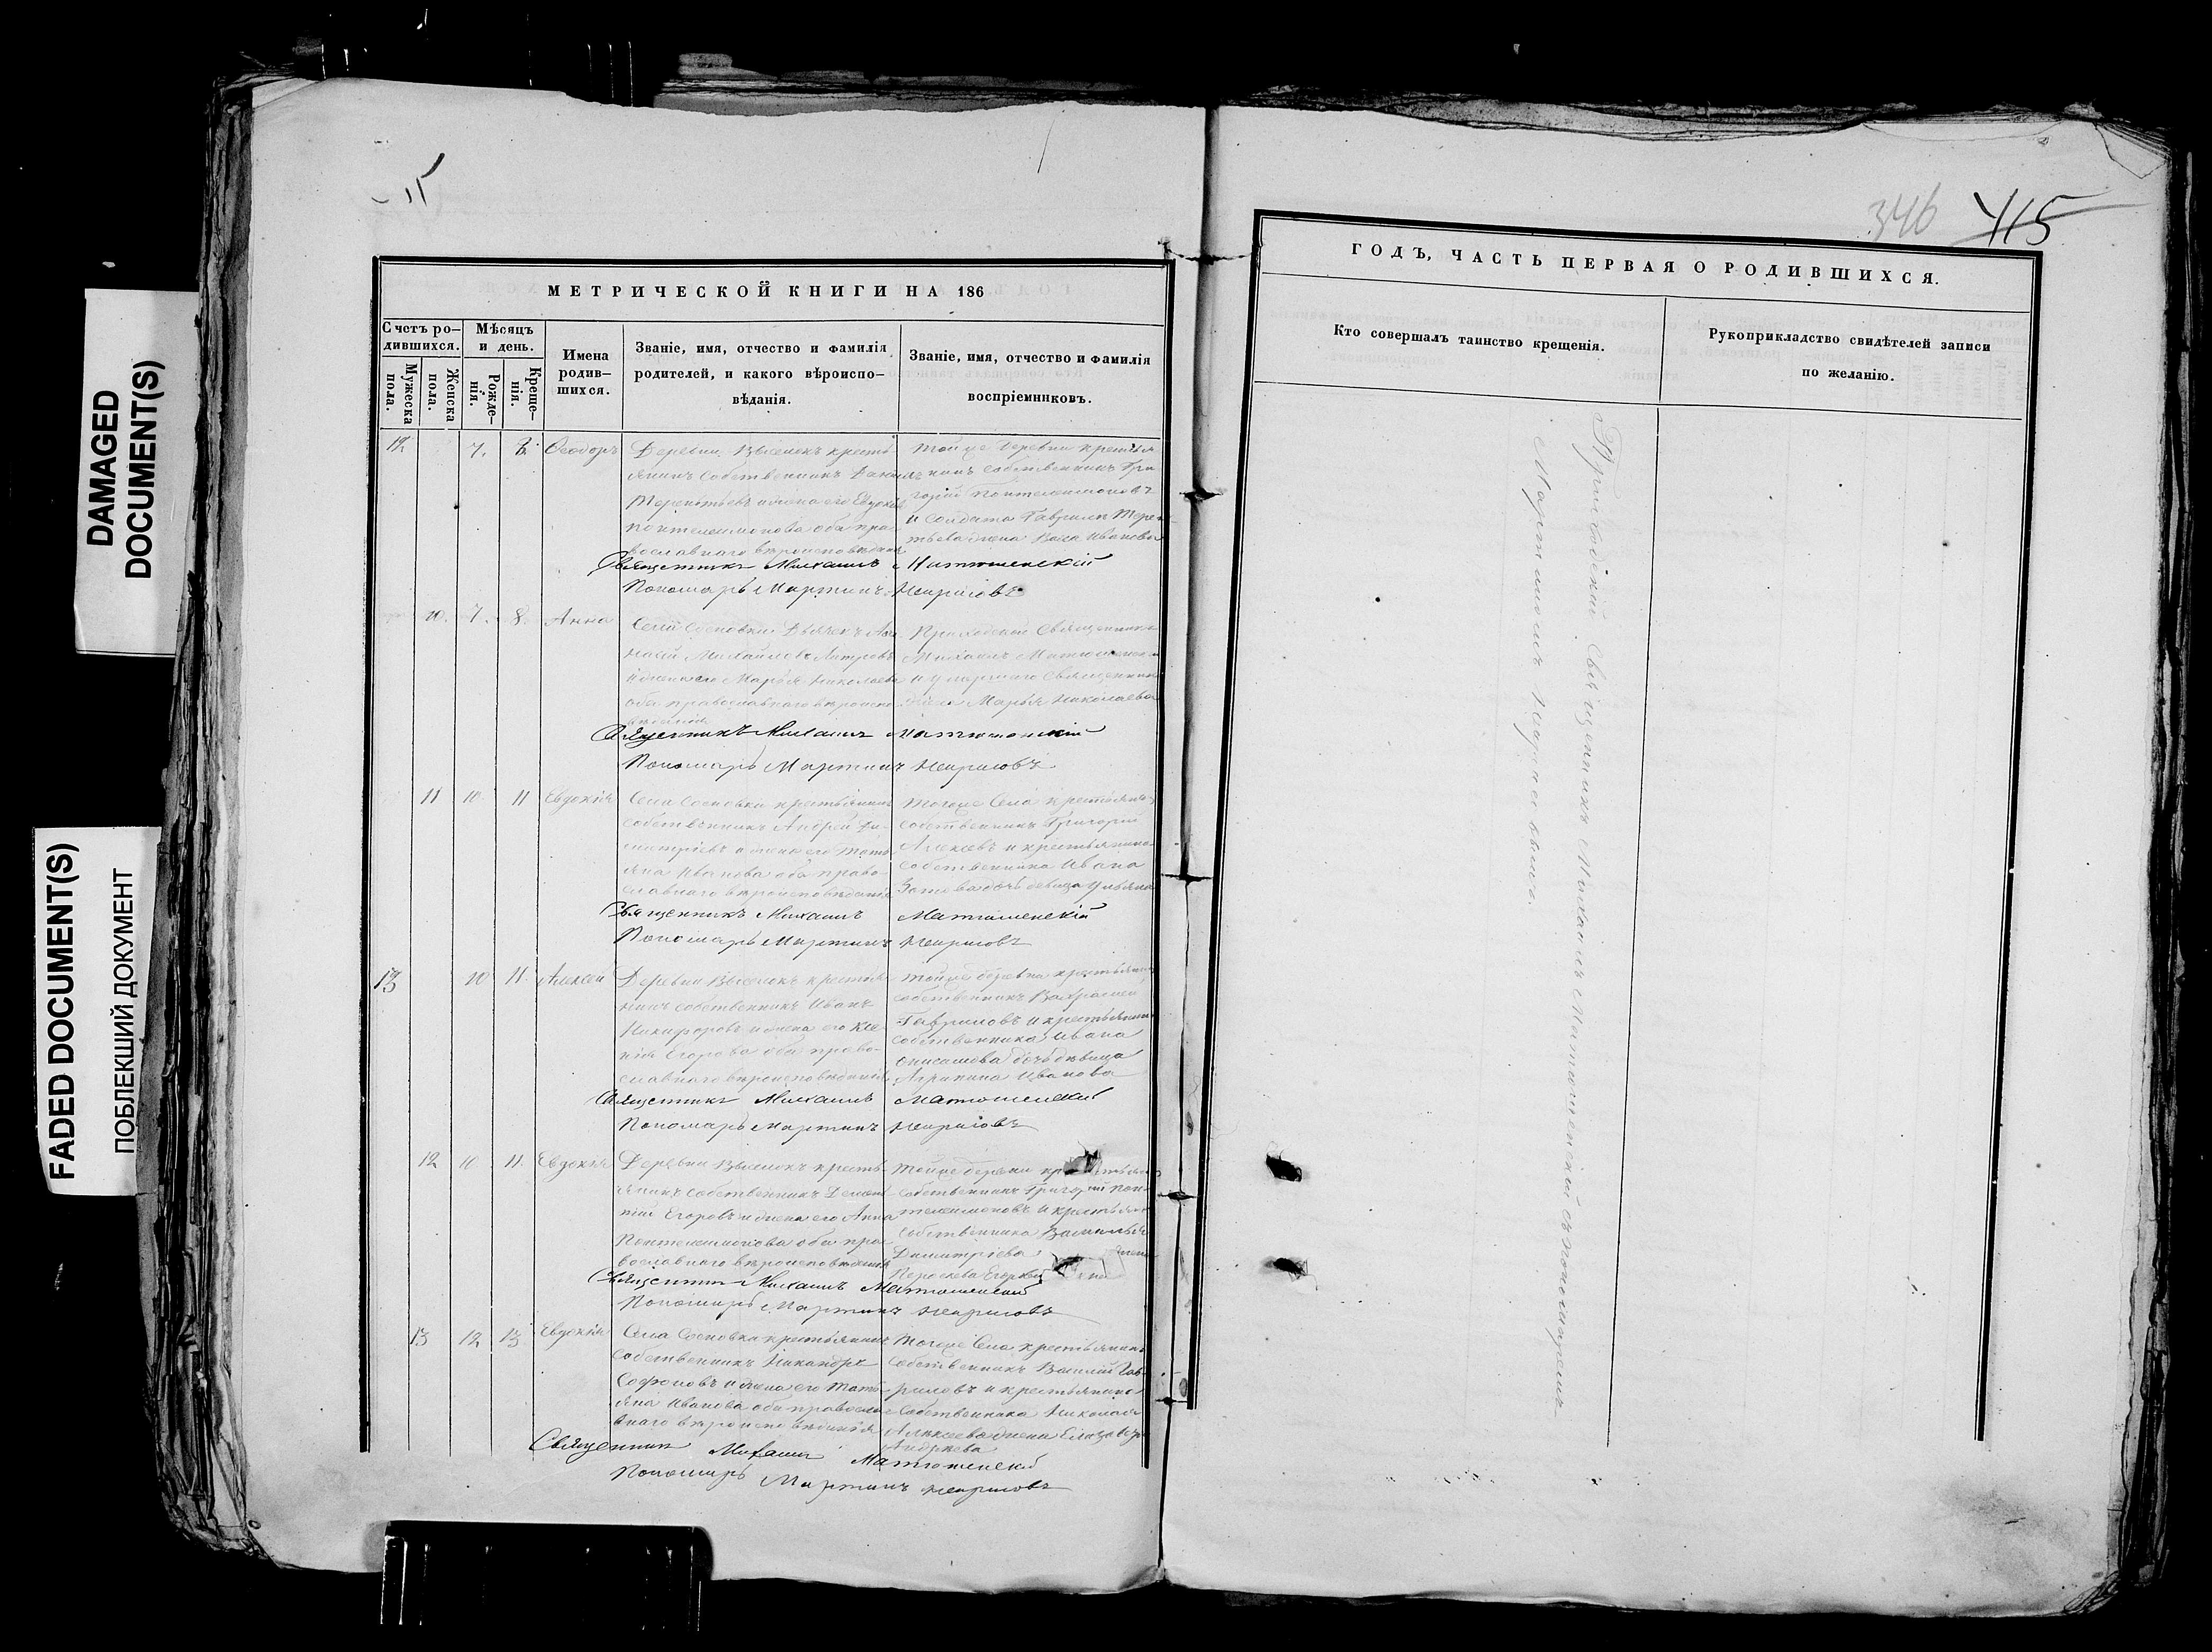 DAMAGED
DOCUMENT(S)
FADED DOCUMENT(S)
ПОБЛЕКШИЙ ДОКУМЕНТ
346 415
МЕТРИЧЕСКОЙ КНИГИ НА 186
Счетъ ро-
дившихся.
Мужеска
пола.
Женска
пола.
Мѣсяцъ
и день.
Рожде-
нія.
Креще-
нія.
Имена
родив-
шихся.
Званіе, имя, отчество и фамилія
родителей, и какого вѣроиспо-
вѣданія.
Званіе, имя, отчество и фамилія
воспріемниковъ.
12 7. 8. Ѳеодоръ
Деревни Выселокъ кресть-
янинъ собственникъ
Терентьевъ и жена его Евдокія
Пантелеимонова оба пра-
вославнаго вѣроисповѣданія
Тойже деревни крестья-
нинъ собственникъ Гри-
горій Пантелеимоновъ
и солдата Гаврила Терен-
тьева жена Иванова
Священникъ Михаилъ Матюшенскій
Пономарь Мартинъ
10. 7. 8. Анна
Села Сосновки Дьячекъ
Михайловъ
и жена его Марья Николаева
оба православнаго вѣроиспо-
вѣданія
Приходской Священникъ
Михаилъ Матюшенскій
и умершаго Священника
жена Марья Николаева
Священникъ Михаилъ Матюшенскій
Пономарь Мартинъ
11 10 11 Евдокія
Села Сосновки крестьянинъ
собственникъ Андрей Ди-
митріевъ и жена его Тать-
яна Иванова оба право-
славнаго вѣроисповѣданія
Тогоже Села крестьянинъ
собственникъ Григорій
Алексѣевъ и крестьянина
собственника Ивана
Зотова дочь девица Ульяна
Священникъ Михаилъ Матюшенскій
Пономарь Мартинъ
13 10 11. Алексѣй
Деревни Выселокъ крестья-
нинъ собственникъ Иванъ
Никифоровъ и жена его Ксе-
нія Егорова оба право-
славнаго вѣроисповѣданія
Тойже деревни крестьянинъ
собственникъ
Гавриловъ и крестьянина
собственника Ивана
Анисимова дочь девица
Агрипина Иванова
Священникъ Михаилъ Матюшенскій
Пономарь Мартинъ
12 10 11. Евдокія
Деревни Выселокъ кресть-
янинъ собственникъ Демен-
тій Егоровъ и жена его Анна
Пантелеимонова оба пра-
вославнаго вѣроисповѣданія
Тойже деревни
собственникъ Григорій Пан-
телеимоновъ и крестьянина
собственника Василья
Димитріева жена
Егорова
Священникъ Михаилъ Матюшенскій
Пономарь Мартинъ
13 12 13. Евдокія
Села Сосновки крестьянинъ
собственникъ Никандръ
Софоновъ и жена его Тать-
яна Иванова оба православ-
внаго вѣроисповѣданія
Тогоже Села крестьянинъ
собственникъ Василій Гав-
риловъ и крестьянина
собственника Николая
Алексѣева жена Елизавета
Андреева
Священникъ Михаилъ Матюшенскій
Пономарь Мартинъ
ГОДЪ, ЧАСТЬ ПЕРВАЯ О РОДИВШИХСЯ.
Кто совершалъ таинство крещенія.
Рукоприкладство свидѣтелей записи
по желанію.
Приходскій Священникъ Михаилъ Матюшенскій съ пономаремъ